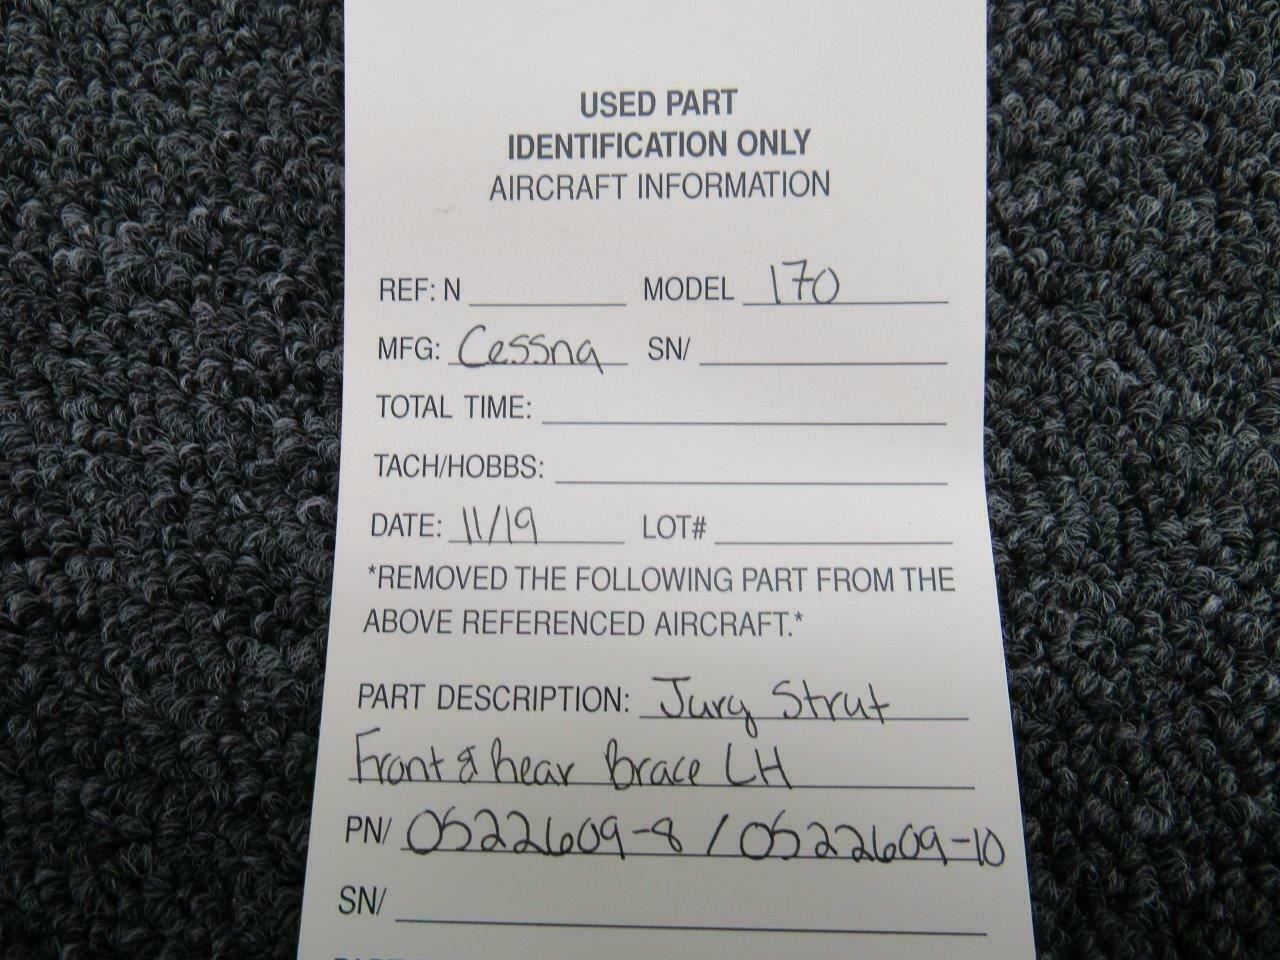 USED PART
IDENTIFICATION ONLY
AIRCRAFT INFORMATION
REF: N MODEL 170
MFG: Cessna SN/
TOTAL TIME:
TACH/HOBBS:
DATE: 11/19 LOT#
*REMOVED THE FOLLOWING PART FROM THE
ABOVE REFERENCED AIRCRAFT.*
PART DESCRIPTION: Jury Strut
Front & Rear Brace LH
PN/ 0522609-8 / 0522609-10
SN/